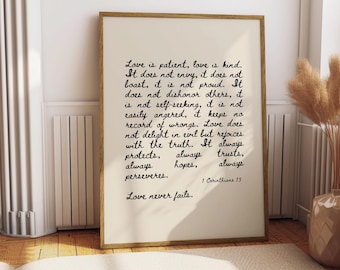 Love is patient, love is kind.
It does not envy, it does not
boast, it is not proud. It
does not dishonor others, it
is not self-seeking, it is not
easily angered, it keeps no
record of wrongs. Love does
not delight in evil but rejoices
with the truth. It always
protects, always trusts,
always hopes, always
perseveres.
1 Corinthians 13
Love never fails.